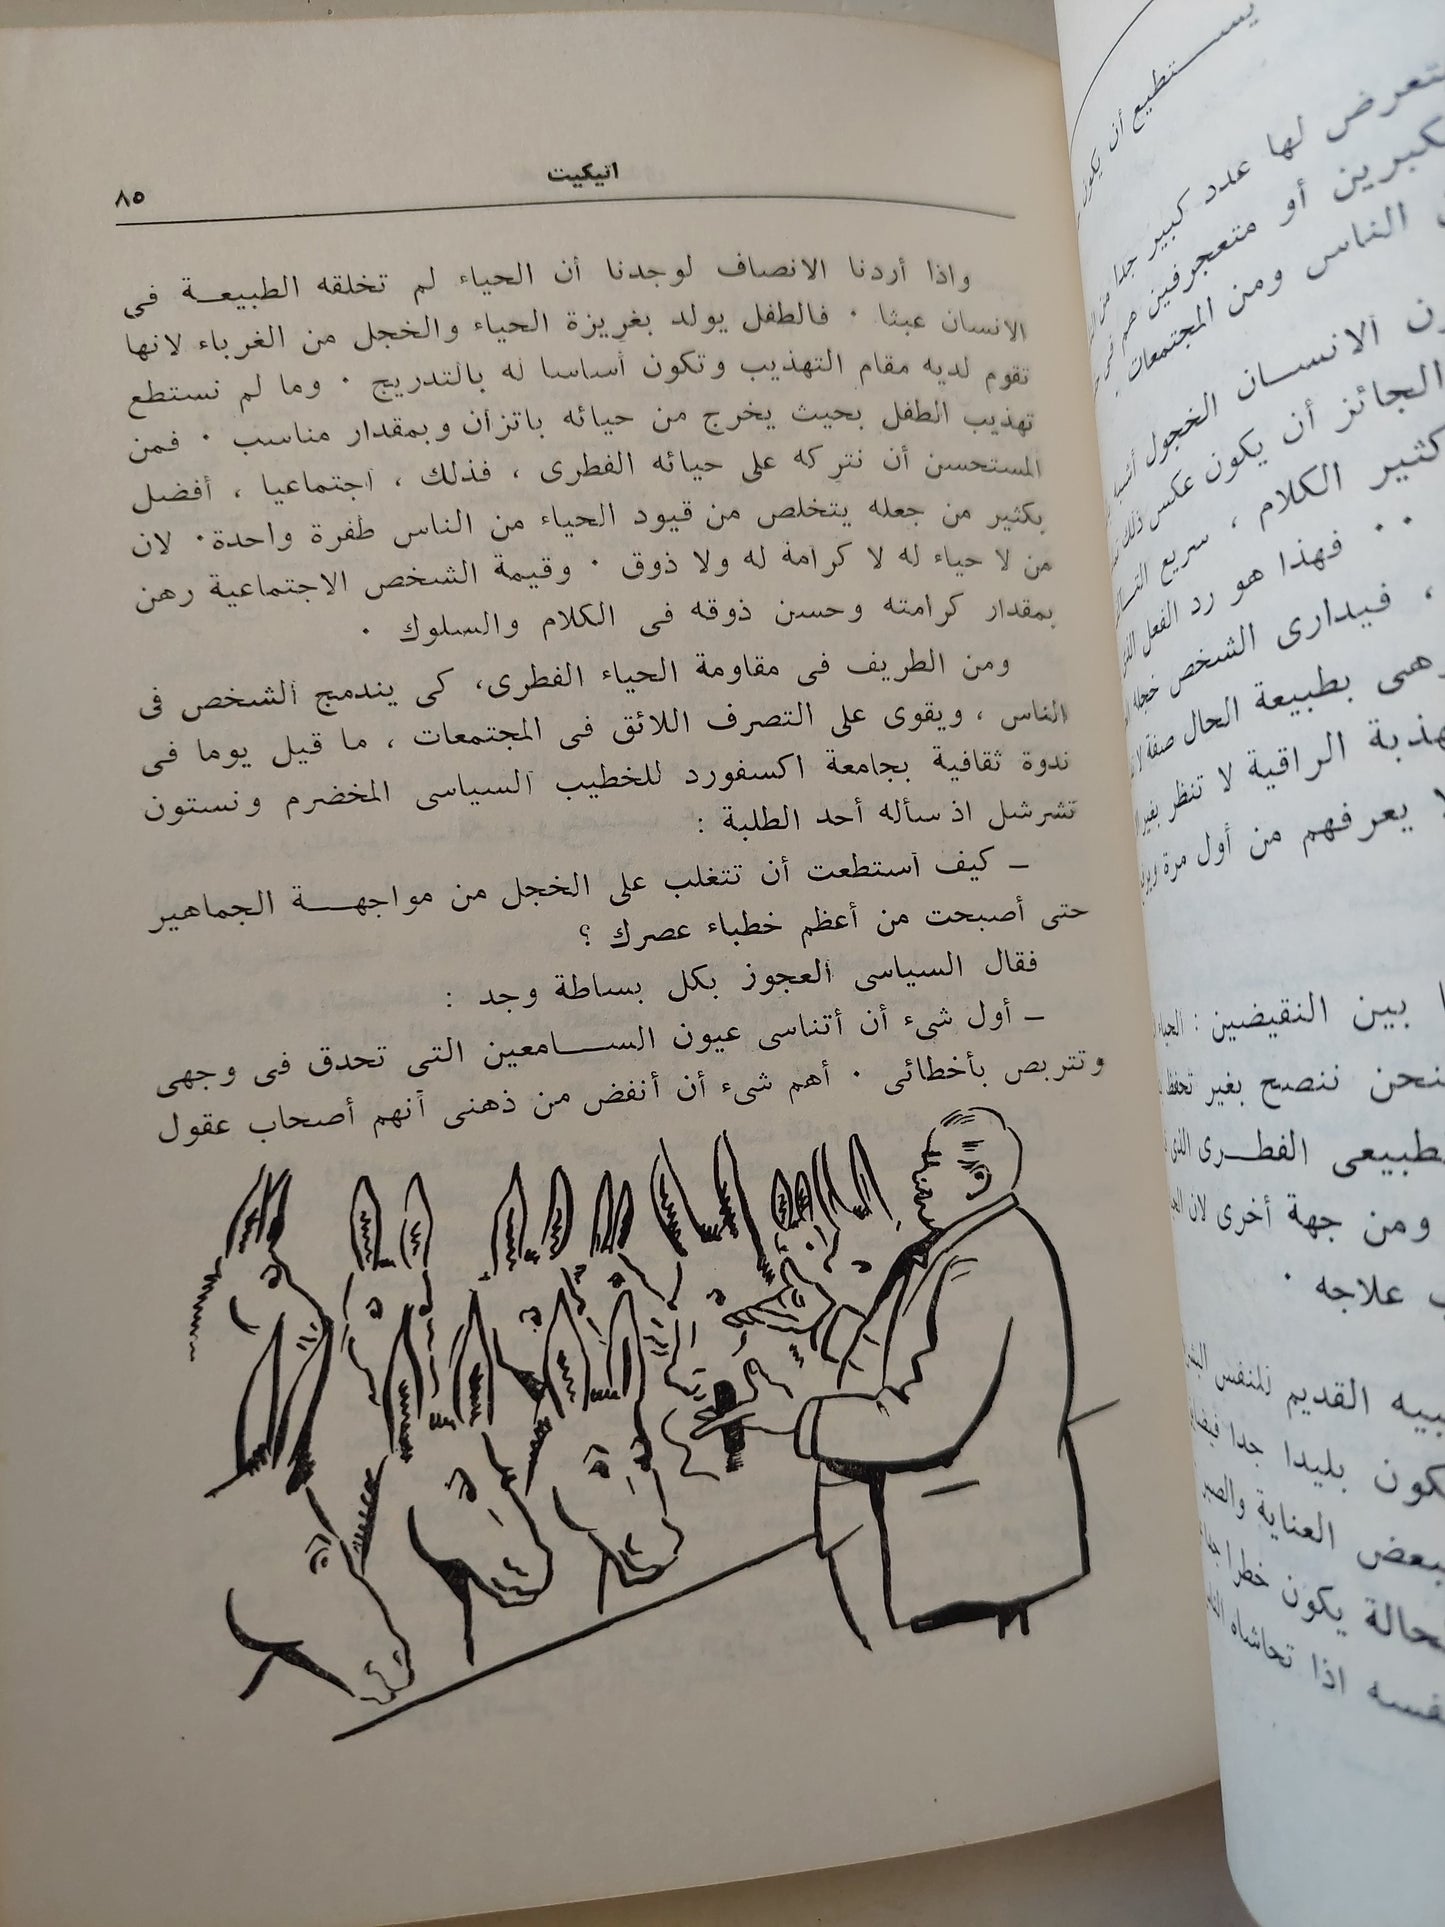 اتيكيت
٨٥
واذا أردنا الانصاف لوجدنا أن الحياء لم تخلقه الطبيعـة فى
الانسان عبثا . فالطفل يولد بغريزة الحياء والخجل من الغرباء لانها
تقوم لديه مقام التهذيب وتكون أساسا له بالتدريج . وما لم نستطع
تهذيب الطفل بحيث يخرج من حيائه باتزان وبمقدار مناسب . فمن
المستحسن أن نتركه على حيائه الفطرى ، فذلك ، اجتماعيا ، أفضل
بكثير من جعله يتخلص من قيود الحياء من الناس طفرة واحدة. لان
من لا حياء له لا كرامة له ولا ذوق . وقيمة الشخص الاجتماعية رهن
بمقدار كرامته وحسن ذوقه فى الكلام والسلوك .
ومن الطريف فى مقاومة الحياء الفطرى، كى يندمج الشخص فى
الناس ، ويقوى على التصرف اللائق فى المجتمعات ، ما قيل يوما فى
ندوة ثقافية بجامعة اكسفورد للخطيب السياسى المخضرم ونستون
تشرشل اذ سأله أحد الطلبة :
ـ كيف استطعت أن تتغلب على الخجل من مواجهـــة الجماهير
حتى أصبحت من أعظم خطباء عصرك ؟
فقال السياسى العجوز بكل بساطة وجد :
ـ أول شىء أن أتناسى عيون الســـامعين التى تحدق فى وجهى
وتتربص بأخطائى . أهم شىء أن أنفض من ذهنى أنهم أصحاب عقول
يســـتطيع أن يكون
تعرض لها عدد كبير جدا من
أو متعجرفين
الناس ومن المجتمعات .
الانســان الخجول
الجائز أن يكون عكس ذلك
كثير الكلام ، سريع
. . فهذا هو رد الفعل
، فيدارى الشخص خجله
بطبيعة الحال صفة لا
الراقية لا تنظر بغير
يعرفهم من أول مرة
بين النقيضين : الحياء
ننصح بغير تحفظ
الفطـرى الذى
ومن جهة أخرى لان
علاجه .
القديم للنفس
بليدا جدا
العناية والصبر
يكون خطرا
اذا تحاشاه